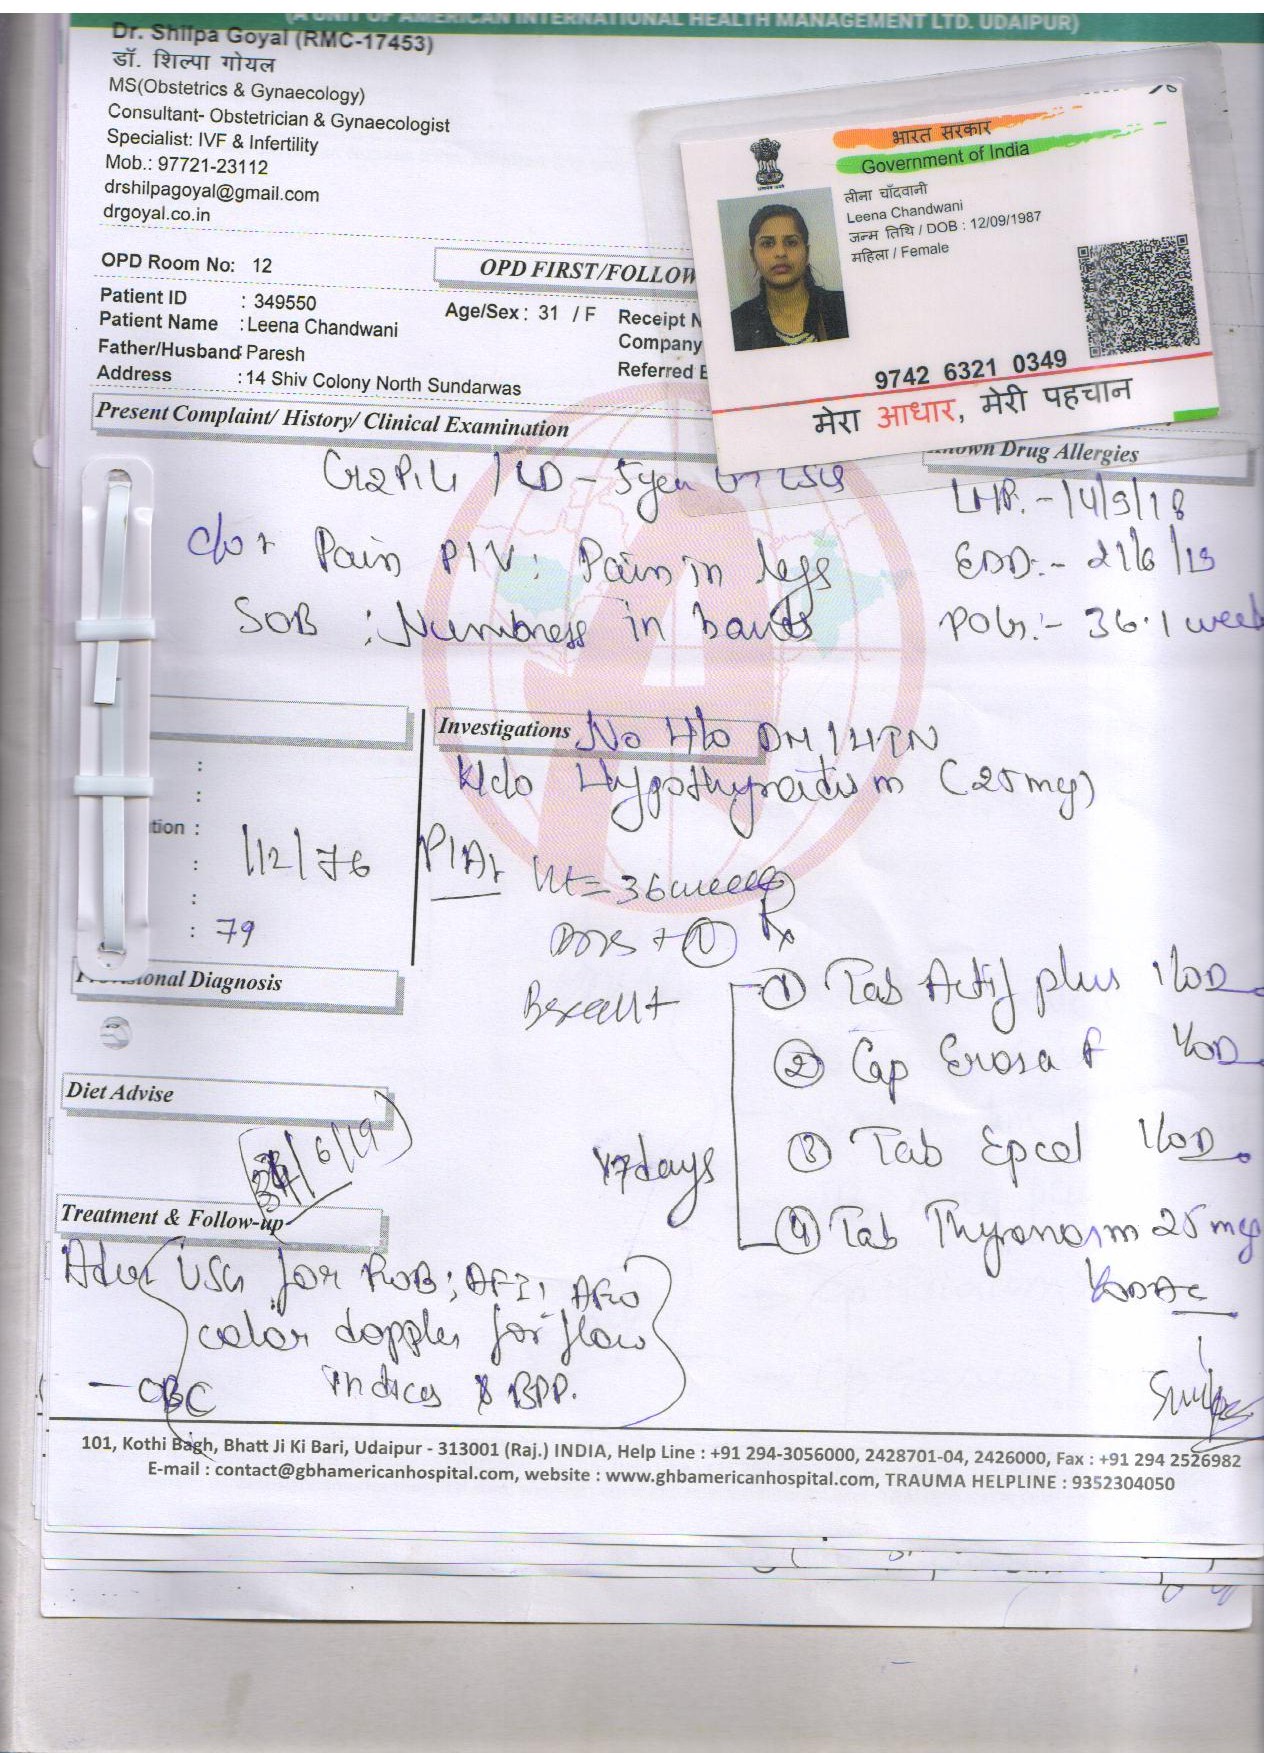 (A UNIT OF AMERICAN INTERNATIONAL HEALTH MANAGEMENT LTD. UDAIPUR)
Dr. Shilpa Goyal (RMC-17453)
डॉ. शिल्पा गोयल
MS(Obstetrics & Gynaecology)
Consultant- Obstetrician & Gynaecologist
Specialist: IVF & Infertility
Mob.: 97721-23112
drshilpagoyal@gmail.com
drgoyal.co.in
भारत सरकार
Government of India
लीना चाँदवानी
Leena Chandwani
जन्म तिथि / DOB : 12/09/1987
महिला / Female
9742 6321 0349
मेरा आधार, मेरी पहचान
OPD Room No: 12
OPD FIRST/FOLLOW
Patient ID : 349550
Age/Sex : 31 / F
Receipt N
Patient Name : Leena Chandwani
Company
Father/Husband : Paresh
Referred
Address : 14 Shiv Colony North Sundarwas
Present Complaint/ History/ Clinical Examination
Known Drug Allergies
LMP:- 14/9/18
c/o + Pain P/V; Pain in legs
EDD:- 21/6/19
SOB ; Numbness in hands
POG:- 36.1 week
Investigations No H/o DM / HTN
K/c/o Hypothyroidism (25 mcg)
tion :
112/76
P/A: Ht = 36 weeks
: 79
Provisional Diagnosis
Rx
① Tab Actif plus 1 OD
② Cap Erosa F 1 OD
Diet Advise
6/19
③ Tab Epcel 1 OD
x7days
④ Tab Thyronorm 25 mcg
Treatment & Follow-up
Adv USG for ROB; AFI;
color doppler for flow
indices & BPP.
- CBC
101, Kothi Bagh, Bhatt Ji Ki Bari, Udaipur - 313001 (Raj.) INDIA, Help Line : +91 294-3056000, 2428701-04, 2426000, Fax : +91 294 2526982
E-mail : contact@gbhamericanhospital.com, website : www.ghbamericanhospital.com, TRAUMA HELPLINE : 9352304050